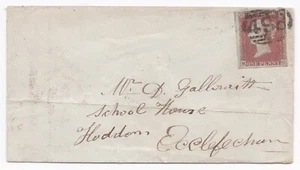 ONE PENNY
Mr D. Galbraith
School House
Hoddom
Ecclefechan